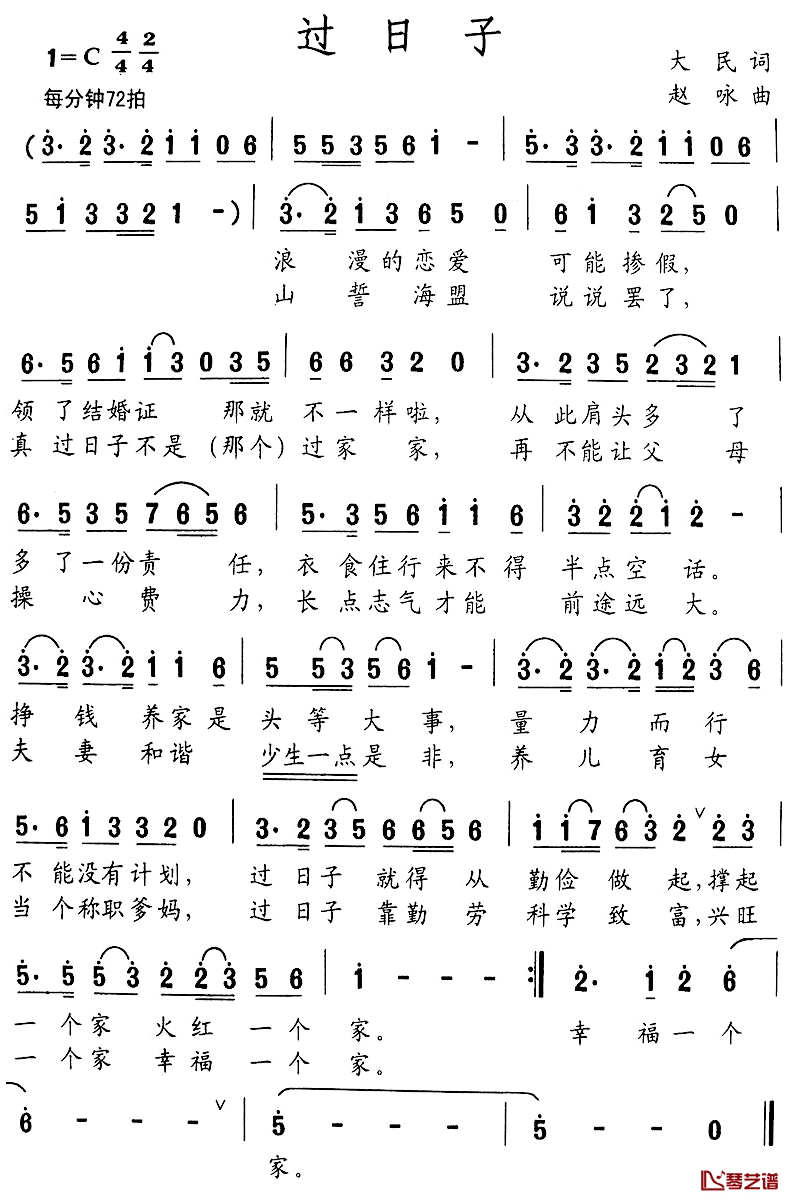 过日子
1=C 4/4 2/4
大民词
每分钟72拍
赵咏曲
(3·2 3·2 1 1 0 6 | 5 5 3 5 6 1 - | 5·3 3·2 1 1 0 6 |
5 1 3 3 2 1 -) | 3·2 1 3 6 5 0 | 6 1 3 2 5 0 |
浪漫的恋爱 可能掺假,
山誓海盟 说说罢了,
6·5 6 1 1 3 0 3 5 | 6 6 3 2 0 | 3·2 3 5 2 3 2 1 |
领了结婚证 那就不一样啦, 从此肩头多了
真过日子不是(那个)过家家, 再不能让父母
6·5 3 5 7 6 5 6 | 5·3 5 6 1 1 6 | 3 2 2 1 2 - |
多了一份责任, 衣食住行来不得半点空话。
操心费力, 长点志气才能前途远大。
3·2 3·2 1 1 6 | 5 5 3 5 6 1 - | 3·2 3·2 1 2 3 6 |
挣钱养家是头等大事, 量力而行
夫妻和谐 少生一点是非, 养儿育女
5·6 1 3 3 2 0 | 3·2 3 5 6 6 5 6 | 1 1 7 6 3 2 ∨ 2 3 |
不能没有计划, 过日子就得从勤俭做起,撑起
当个称职爹妈, 过日子靠勤劳科学致富,兴旺
5·5 5 3 2 2 3 5 6 | 1 - - - :‖ 2· 1 2 6 |
一个家火红一个家。 幸福一个
一个家幸福一个家。
6 - - - ∨ | 5 - - - | 5 - - 0 ‖
家。
琴艺谱